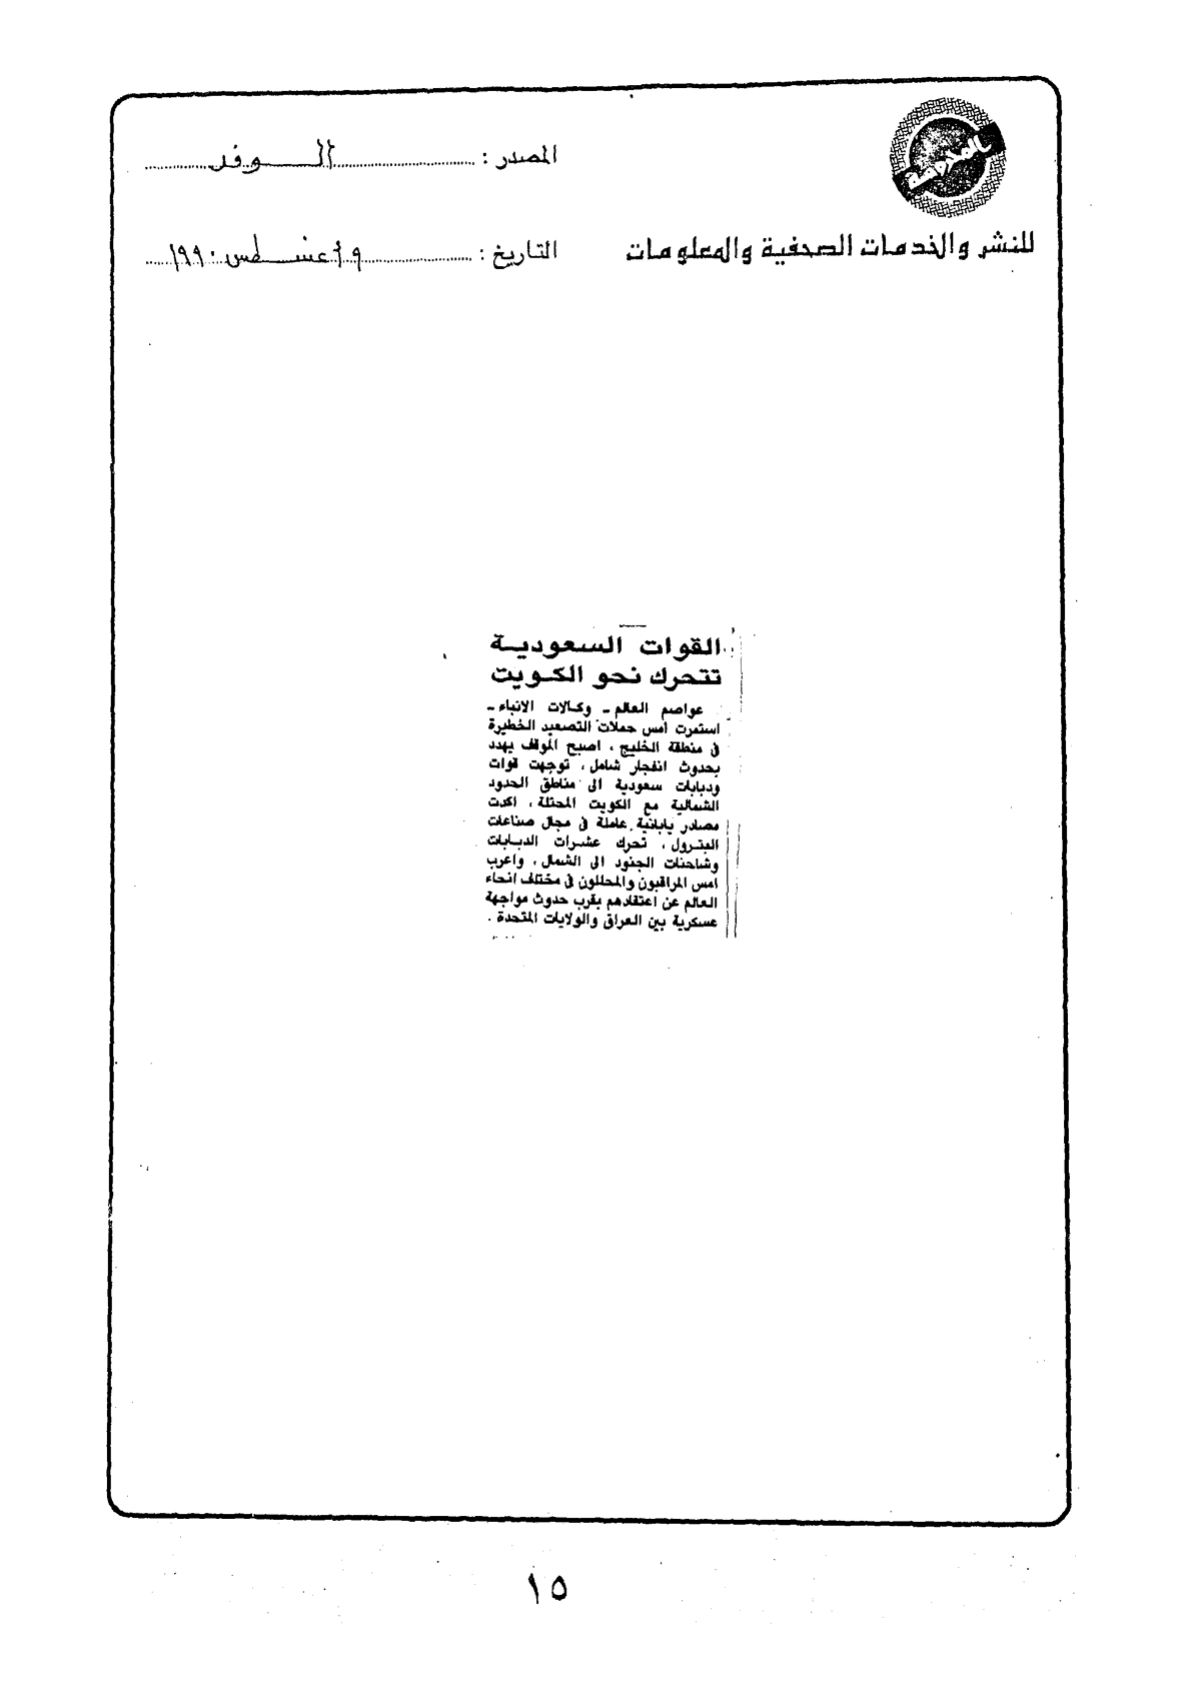 المصدر : الوفد
للنشر والخدمات الصحفية والمعلومات
التاريخ : ٩ أغسطس ١٩٩٠
القوات السعودية
تتحرك نحو الكويت
عواصم العالم - وكالات الانباء -
استمرت امس حملات التصعيد الخطيرة
فى منطقة الخليج ، اصبح الموقف يهدد
بحدوث انفجار شامل ، توجهت قوات
ودبابات سعودية الى مناطق الحدود
الشمالية مع الكويت المحتلة ، اكدت
مصادر يابانية عاملة فى مجال صناعات
البترول ، تحرك عشرات الدبابات
وشاحنات الجنود الى الشمال ، واعرب
امس المراقبون والمحللون فى مختلف انحاء
العالم عن اعتقادهم بقرب حدوث مواجهة
عسكرية بين العراق والولايات المتحدة .
١٥